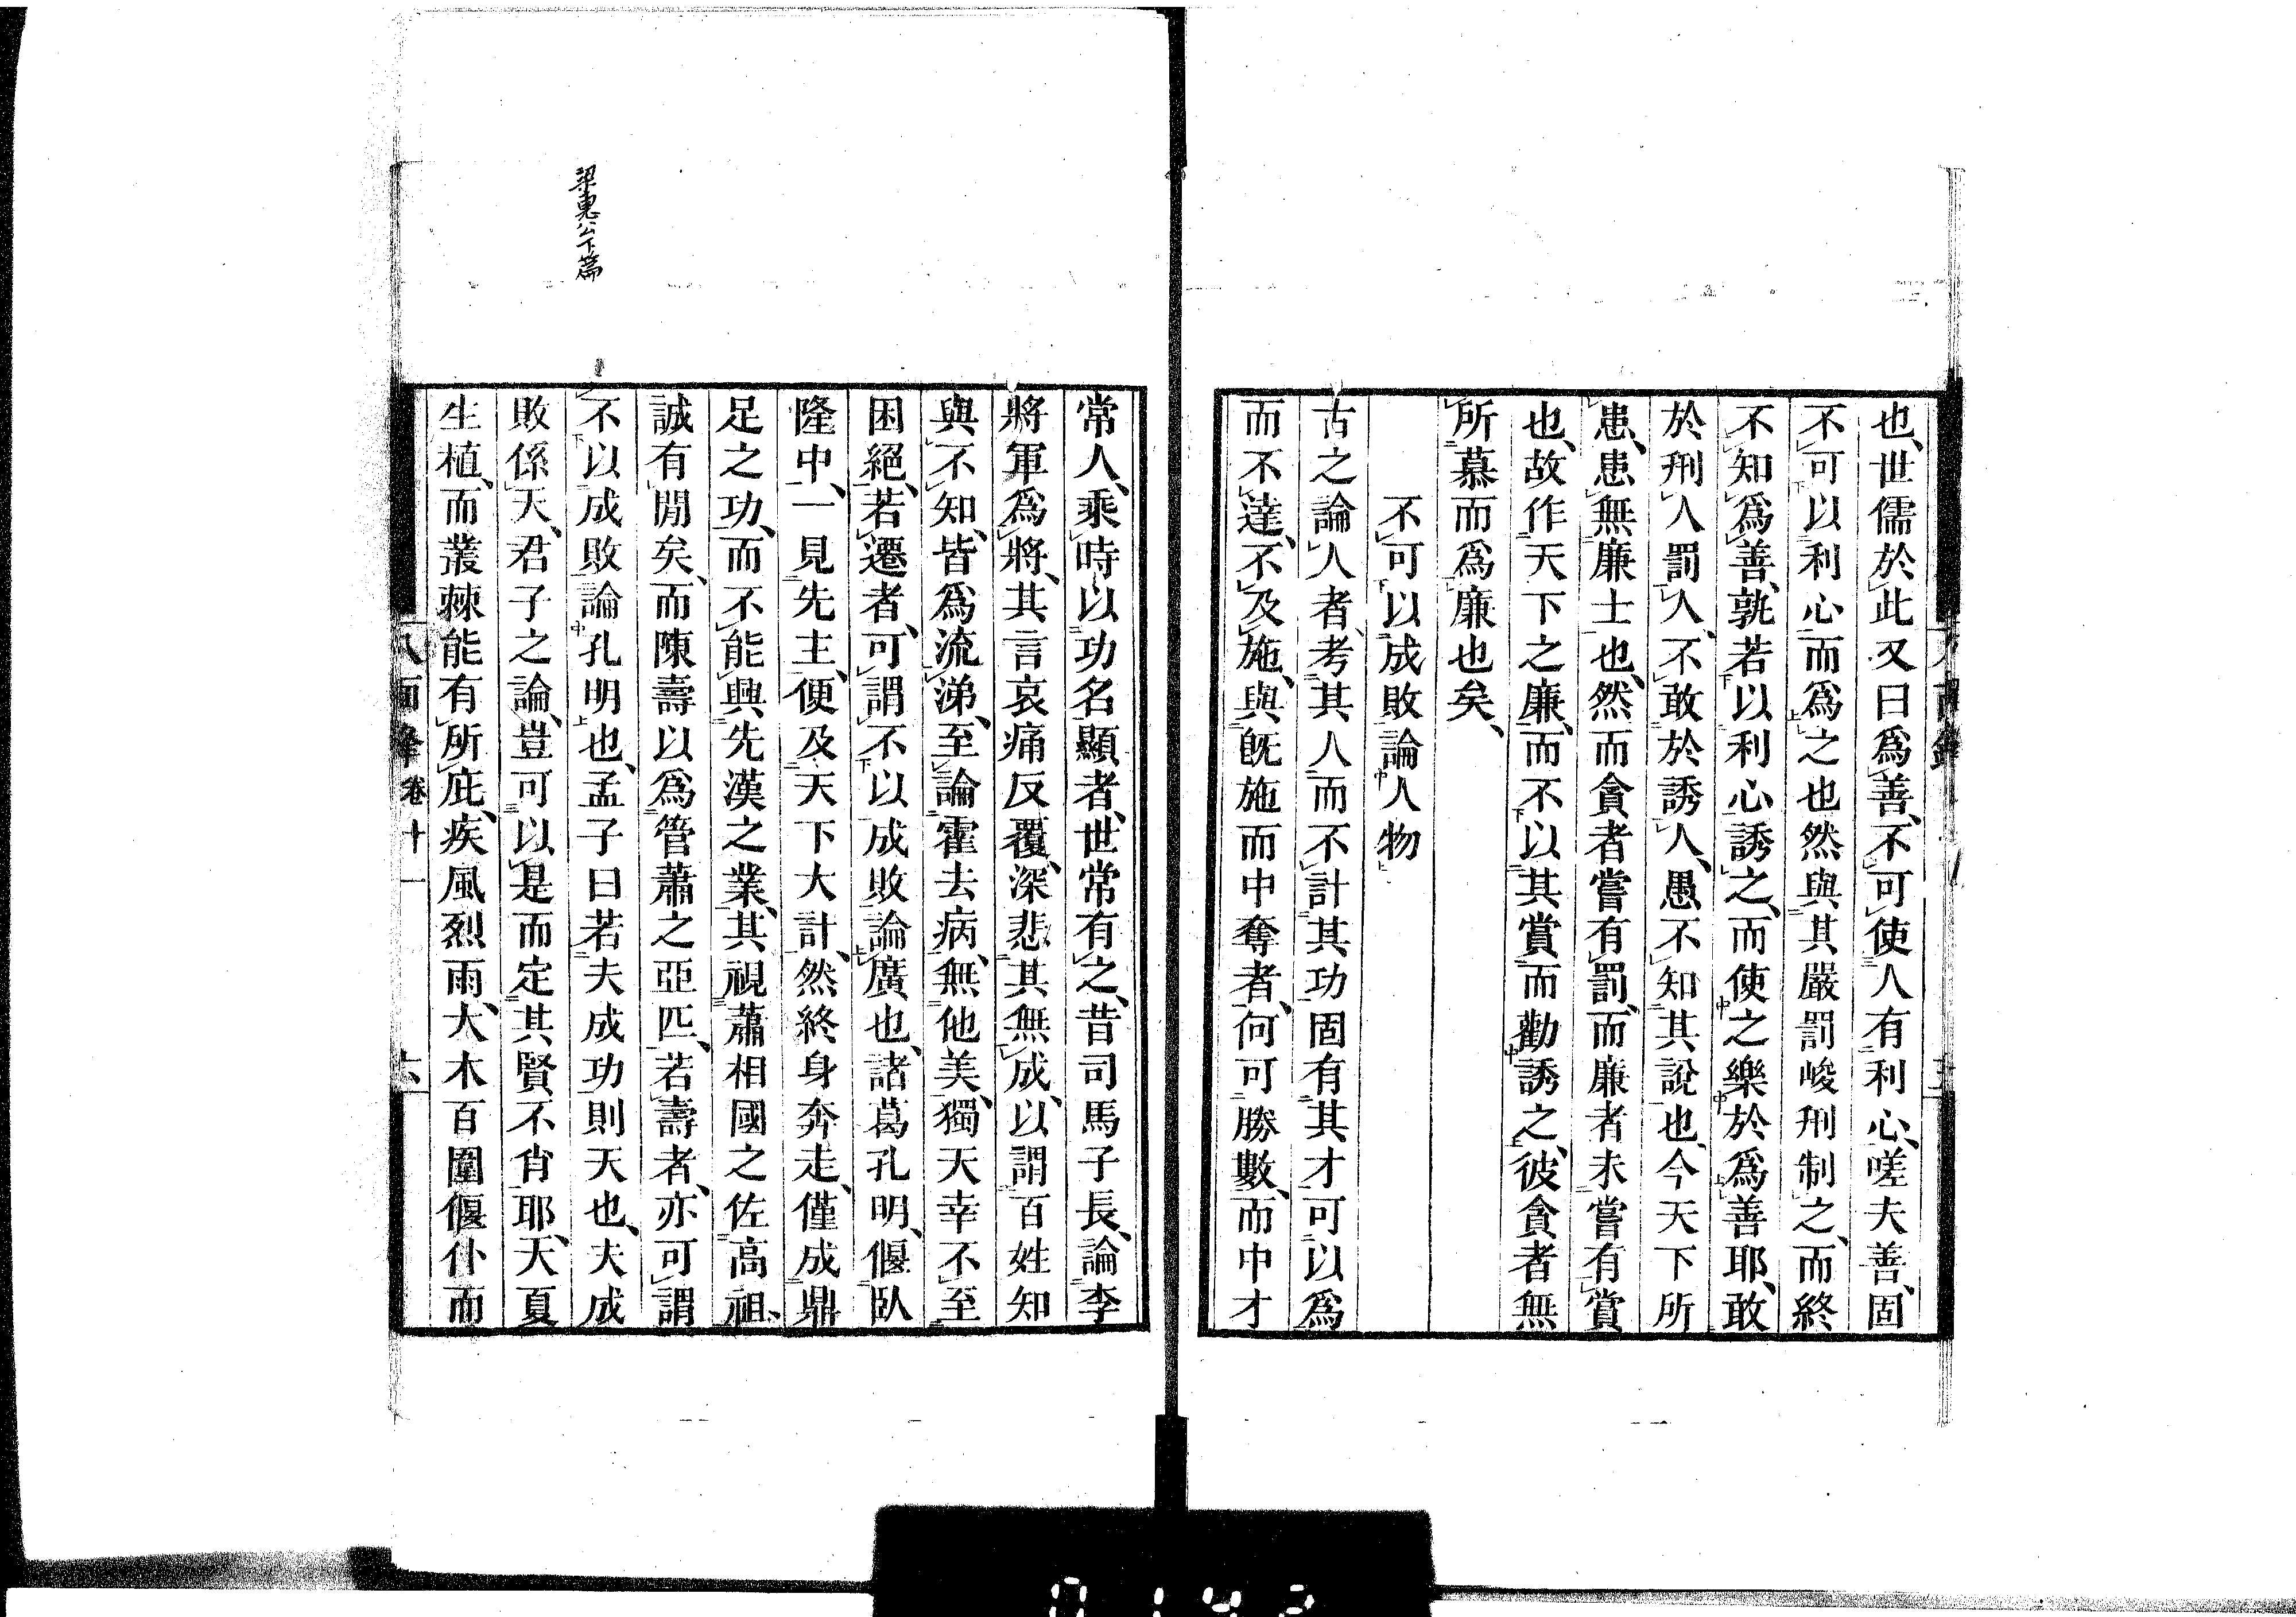 也、世儒於此又曰爲善、不可使人有利心、嗟夫善、固
不可以利心而爲之也然與其嚴罰峻刑制之、而終
不知爲善、孰若以利心誘之、而使之樂於爲善耶、敢
於刑人罰人、不敢於誘人、愚不知其說也、今天下所
患、患無廉士也、然而貪者嘗有罰、而廉者未嘗有賞
也、故作天下之廉、而不以其賞而勸誘之、彼貪者無
所慕而爲廉也矣、
不可以成敗論人物
古之論人者、考其人而不計其功固有其才可以爲
而不達、不及施、與旣施而中奪者、何可勝數、而中才
常人、乘時以功名顯者、世常有之、昔司馬子長、論李
將軍爲將、其言哀痛反覆、深悲其無成、以謂百姓知
與不知、皆爲流涕、至論霍去病、無他美、獨天幸不至
困絕、若遷者、可謂不以成敗論廣也、諸葛孔明、偃臥
隆中、一見先主、便及天下大計、然終身奔走、僅成鼎
足之功、而不能興先漢之業、其視蕭相國之佐高祖、
誠有閒矣、而陳壽以爲管蕭之亞匹、若壽者、亦可謂
不以成敗論孔明也、孟子曰若夫成功則天也、夫成
敗係天、君子之論、豈可以是而定其賢不肖耶、天夏
生植、而叢棘能有所庇、疾風烈雨、大木百圍偃仆而
八面鋒 卷十一 六
梁惠公下篇
0142